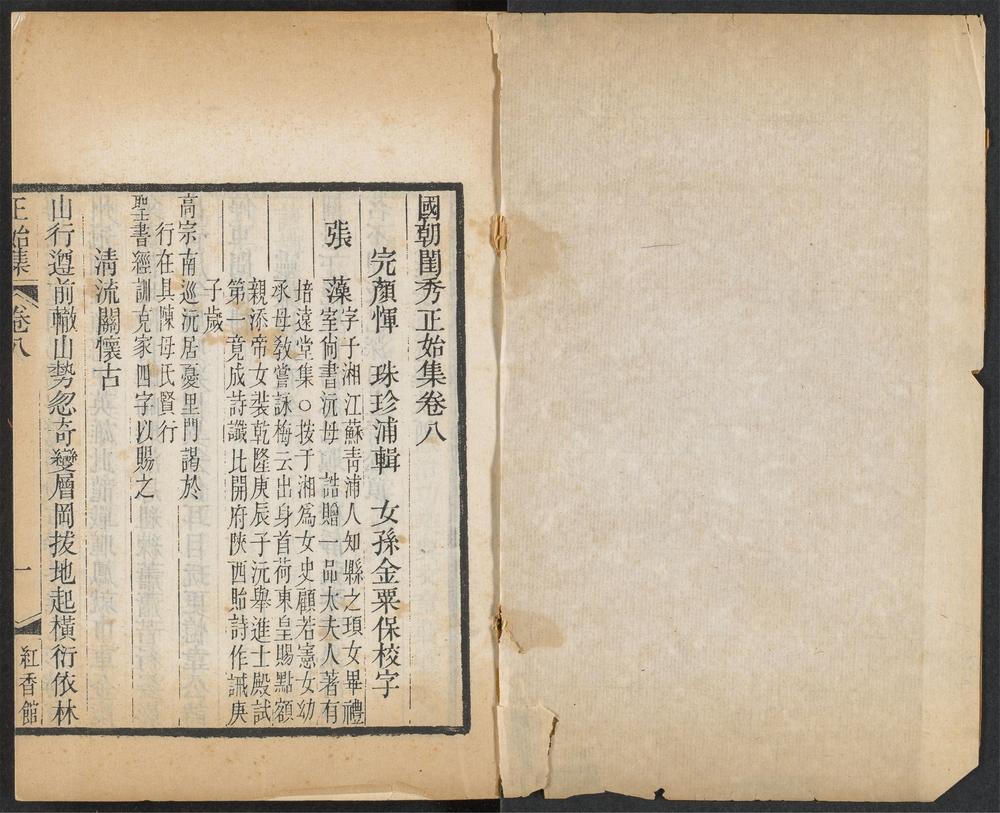 國朝閨秀正始集卷八
完顏惲 珠珍浦輯 女孫金粟保校字
張 藻字子湘江蘇青浦人知縣之頊女畢禮
室尙書沅母 誥贈一品太夫人著有
培遠堂集○按于湘爲女史顧若憲女幼
承母敎嘗詠梅云出身首荷東皇賜點額
親添帝女裝乾隆庚辰子沅舉進士殿試
第一竟成詩讖比開府陝西貽詩作誡庚
子歲
高宗南巡沅居憂里門謁於
行在具陳母氏賢行
聖書經訓克家四字以賜之
淸流關懷古
山行遵前轍山勢忽奇變層岡拔地起橫衍依林
正始集 卷八 一 紅香館